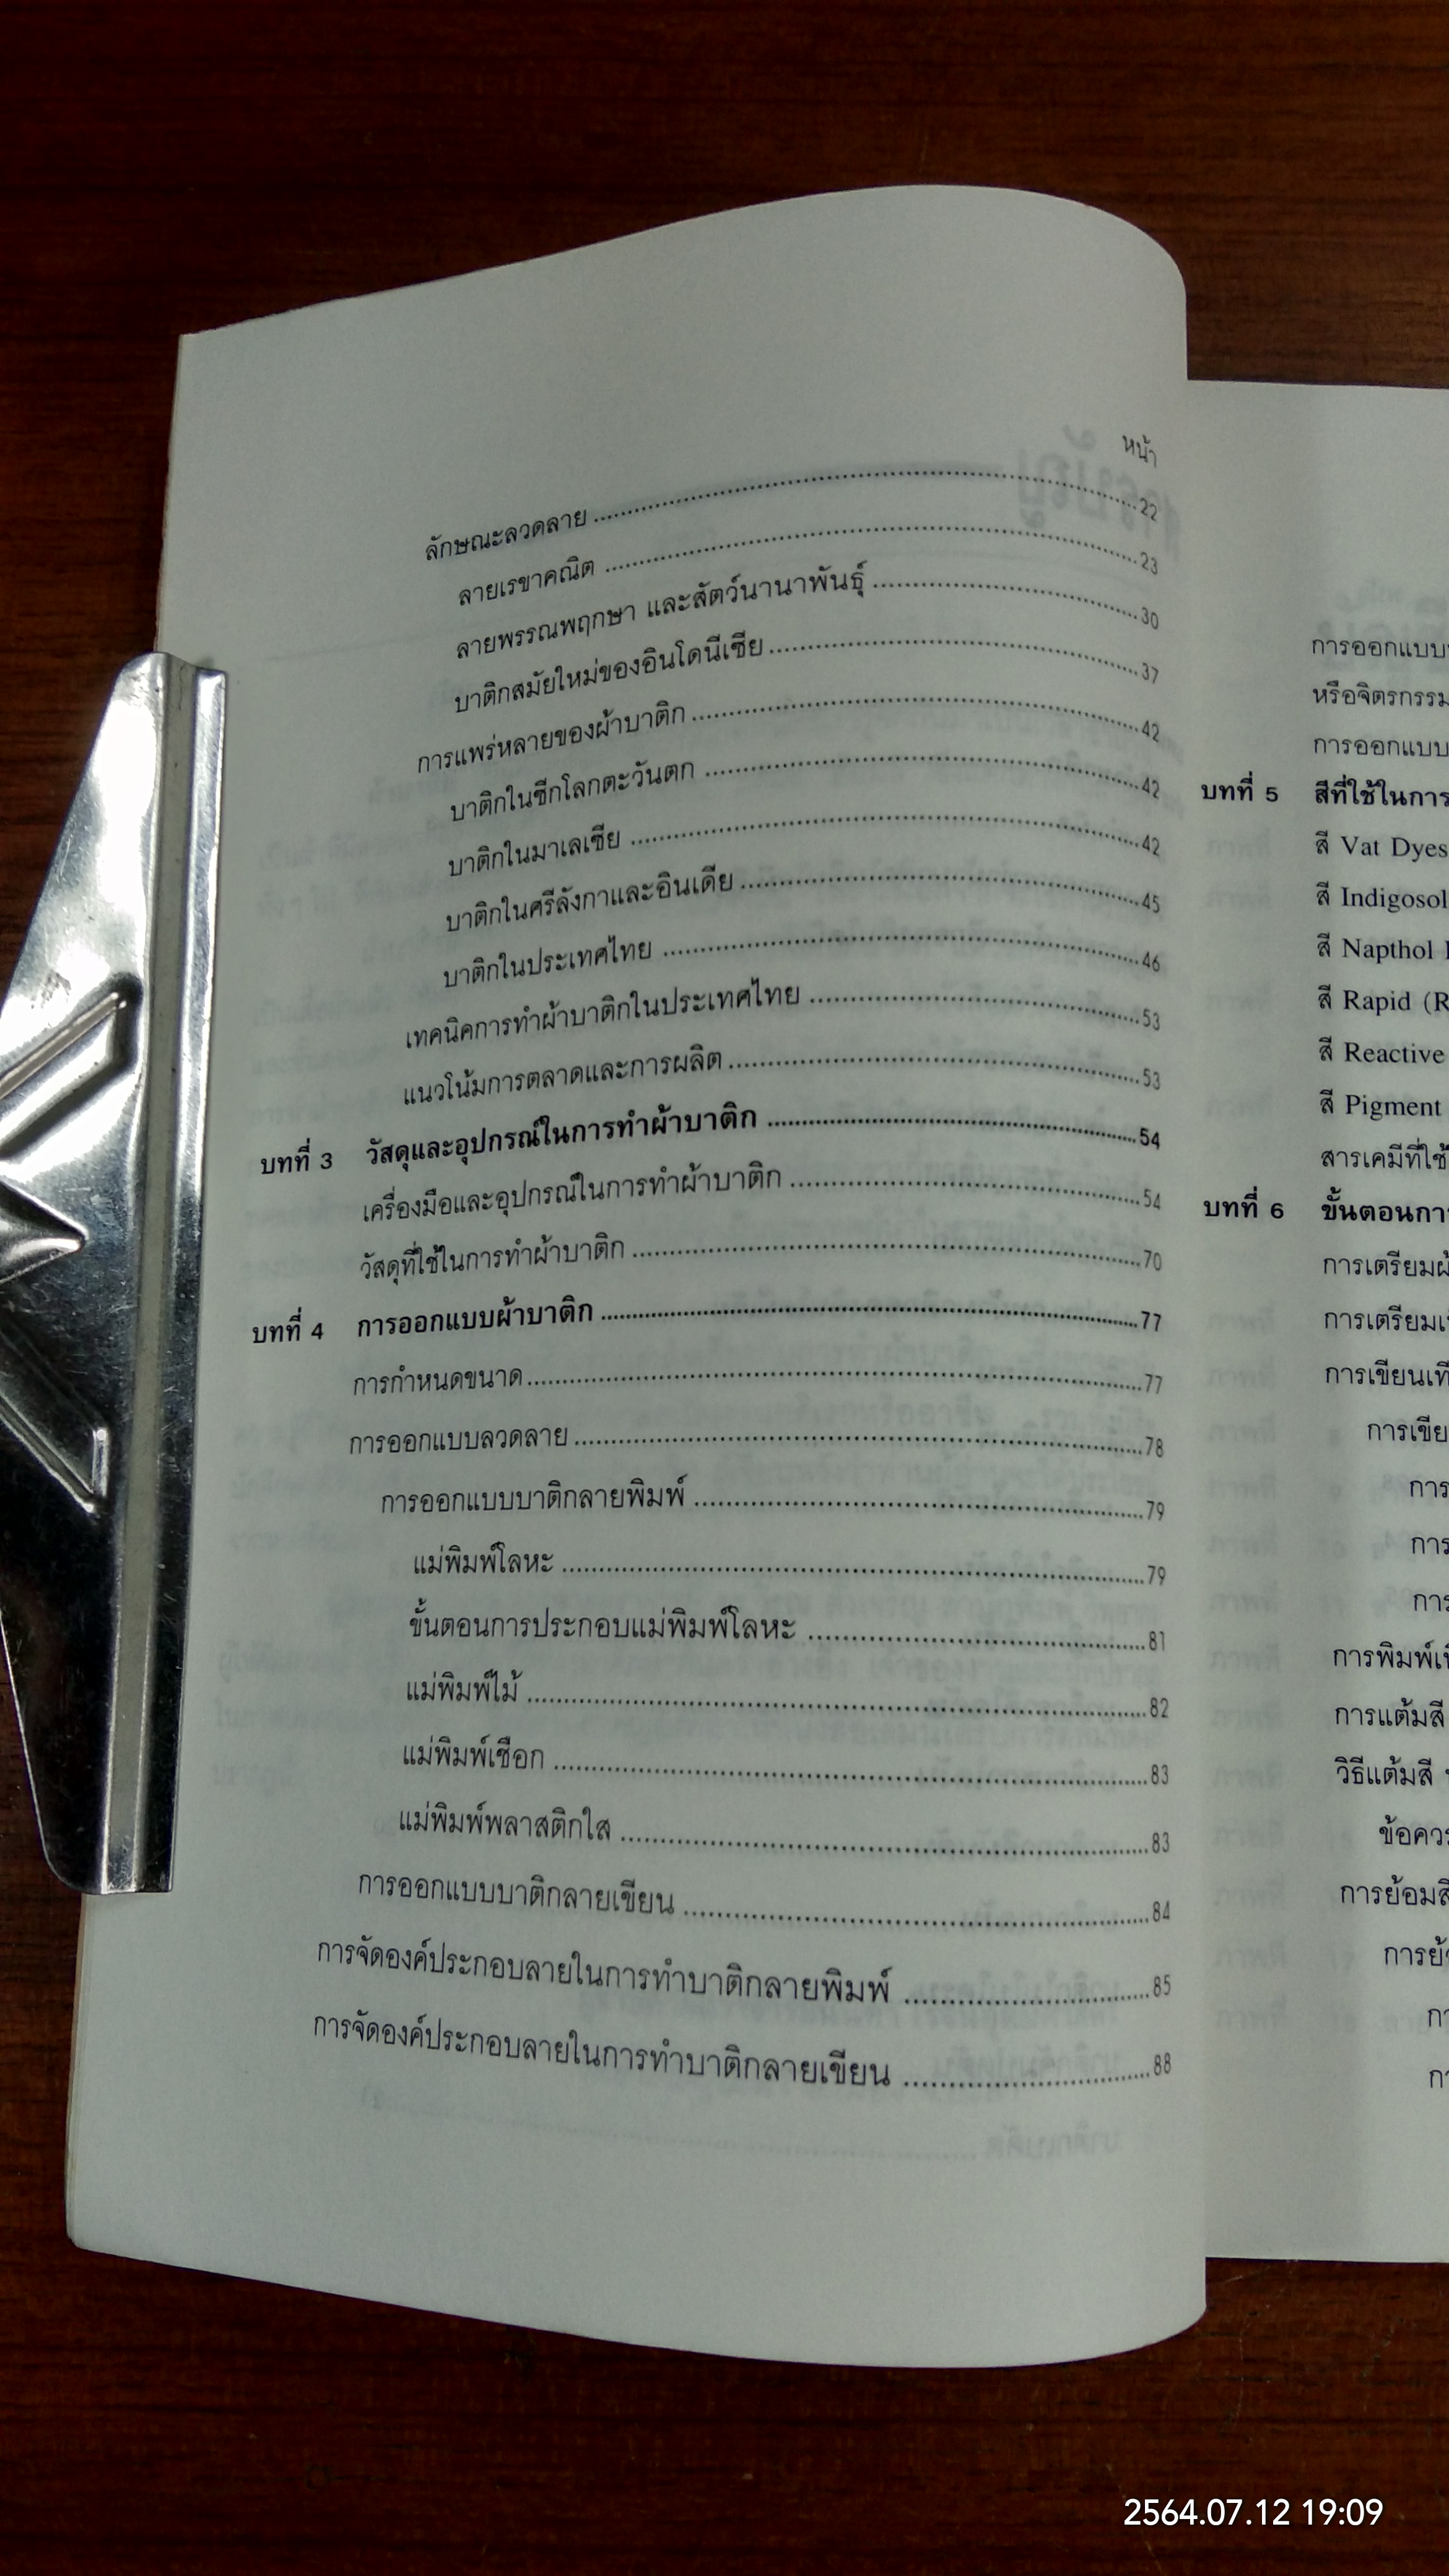 หน้า
ลักษณะลวดลาย ........ 22
ลายเรขาคณิต ........ 23
ลายพรรณพฤกษา และสัตว์นานาพันธุ์ ........ 30
บาติกสมัยใหม่ของอินโดนีเซีย ........ 37
การแพร่หลายของผ้าบาติก ........ 42
บาติกในซีกโลกตะวันตก ........ 42
บาติกในมาเลเซีย ........ 42
บาติกในศรีลังกาและอินเดีย ........ 45
บาติกในประเทศไทย ........ 46
เทคนิคการทำผ้าบาติกในประเทศไทย ........ 53
แนวโน้มการตลาดและการผลิต ........ 53
บทที่ 3 วัสดุและอุปกรณ์ในการทำผ้าบาติก ........ 54
เครื่องมือและอุปกรณ์ในการทำผ้าบาติก ........ 54
วัสดุที่ใช้ในการทำผ้าบาติก ........ 70
บทที่ 4 การออกแบบผ้าบาติก ........ 77
การกำหนดขนาด ........ 77
การออกแบบลวดลาย ........ 78
การออกแบบบาติกลายพิมพ์ ........ 79
แม่พิมพ์โลหะ ........ 79
ขั้นตอนการประกอบแม่พิมพ์โลหะ ........ 81
แม่พิมพ์ไม้ ........ 82
แม่พิมพ์เชือก ........ 83
แม่พิมพ์พลาสติกใส ........ 83
การออกแบบบาติกลายเขียน ........ 84
การจัดองค์ประกอบลายในการทำบาติกลายพิมพ์ ........ 85
การจัดองค์ประกอบลายในการทำบาติกลายเขียน ........ 88
การออกแบบ
หรือจิตรกรรม
การออกแบบ
บทที่ 5 สีที่ใช้ในการ
สี Vat Dyes
สี Indigosol
สี Napthol
สี Rapid (R
สี Reactive
สี Pigment
สารเคมีที่ใช้
บทที่ 6 ขั้นตอนการ
การเตรียมผ้
การเตรียมเ
การเขียนเที
การเขีย
การ
การ
การ
การพิมพ์เที
การแต้มสี
วิธีแต้มสี
ข้อควร
การย้อมสี
การย้
กา
กา
2564.07.12 19:09